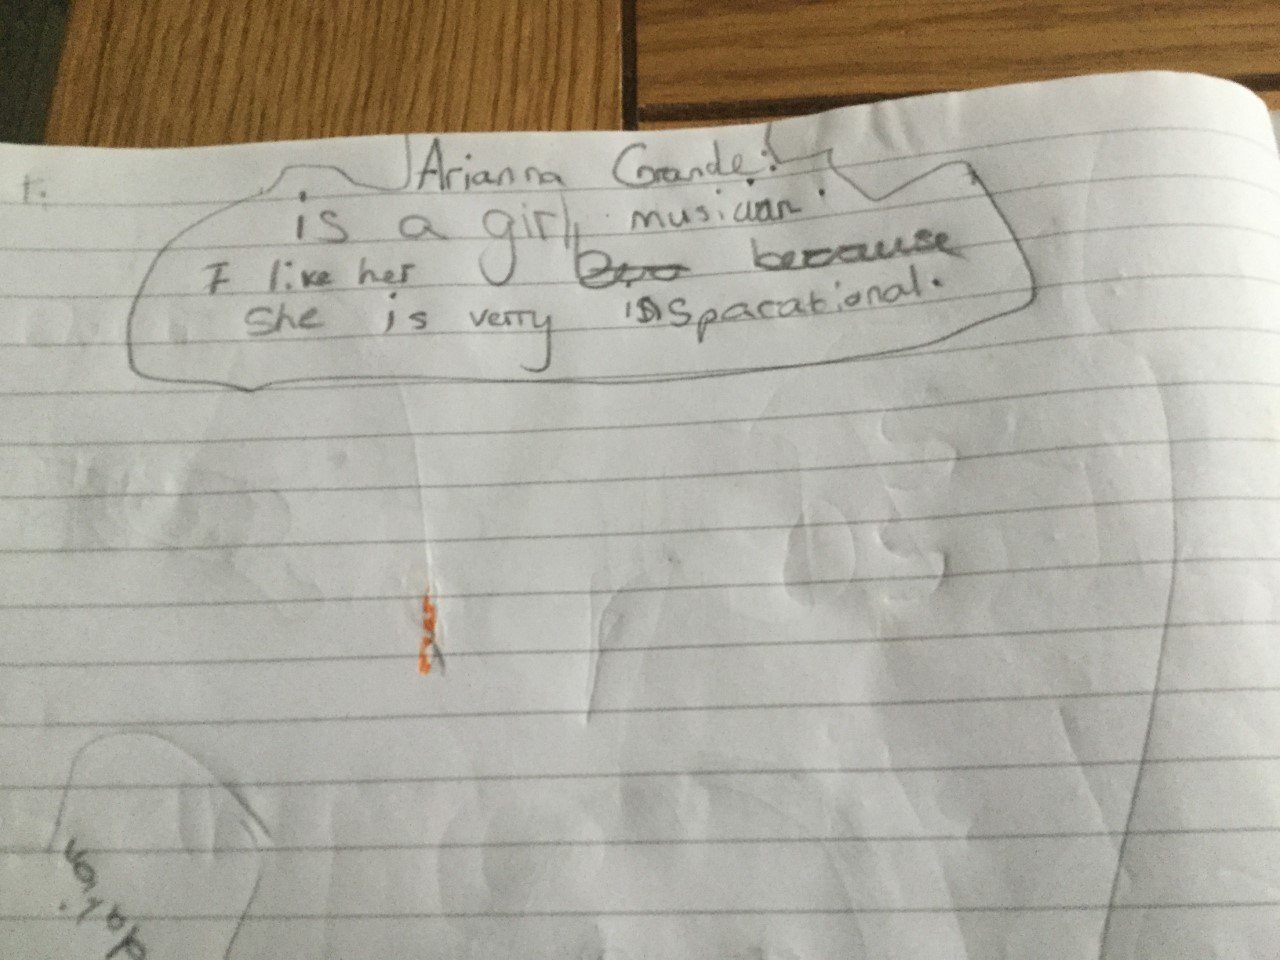 Arianna Grande:
is a girl musician.
I like her because
she is verry inspacational.